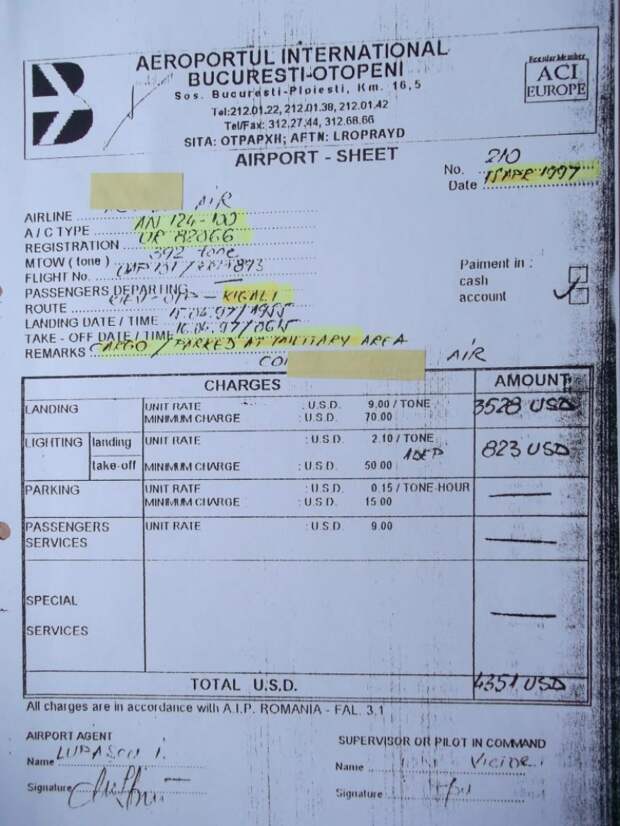 AEROPORTUL INTERNATIONAL
BUCURESTI-OTOPENI
Sos. Bucuresti-Ploiesti, Km. 16,5
Tel:212.01.22, 212.01.38, 212.01.42
Tel/Fax: 312.27.44, 312.68.66
SITA: OTPAPXH; AFTN: LROPRAYD
Regular Member
ACI
EUROPE
AIRPORT - SHEET
No. 210
Date 15 APR 1997
AIRLINE AIR
A / C TYPE AN 124-100
REGISTRATION UR 82066
MTOW ( tone ) 392 tone
FLIGHT No.
PASSENGERS DEPARTING —
ROUTE OTP - KIGALI
LANDING DATE / TIME
TAKE - OFF DATE / TIME
REMARKS CARGO / PARKED AT MILITARY AREA
AIR
Paiment in :
cash
account
CHARGES AMOUNT
LANDING UNIT RATE : U.S.D. 9.00 / TONE 3528 USD
MINIMUM CHARGE : U.S.D. 70.00
LIGHTING landing UNIT RATE : U.S.D. 2.10 / TONE 823 USD
take-off MINIMUM CHARGE : U.S.D. 50.00
PARKING UNIT RATE : U.S.D. 0.15 / TONE-HOUR —
MINIMUM CHARGE : U.S.D. 15.00
PASSENGERS SERVICES UNIT RATE : U.S.D. 9.00 —
SPECIAL
SERVICES —
TOTAL U.S.D. 4351 USD
All charges are in accordance with A.I.P. ROMANIA - FAL. 3.1
AIRPORT AGENT
Name LUPASCU I.
Signature
SUPERVISOR OR PILOT IN COMMAND
Name VICTOR
Signature